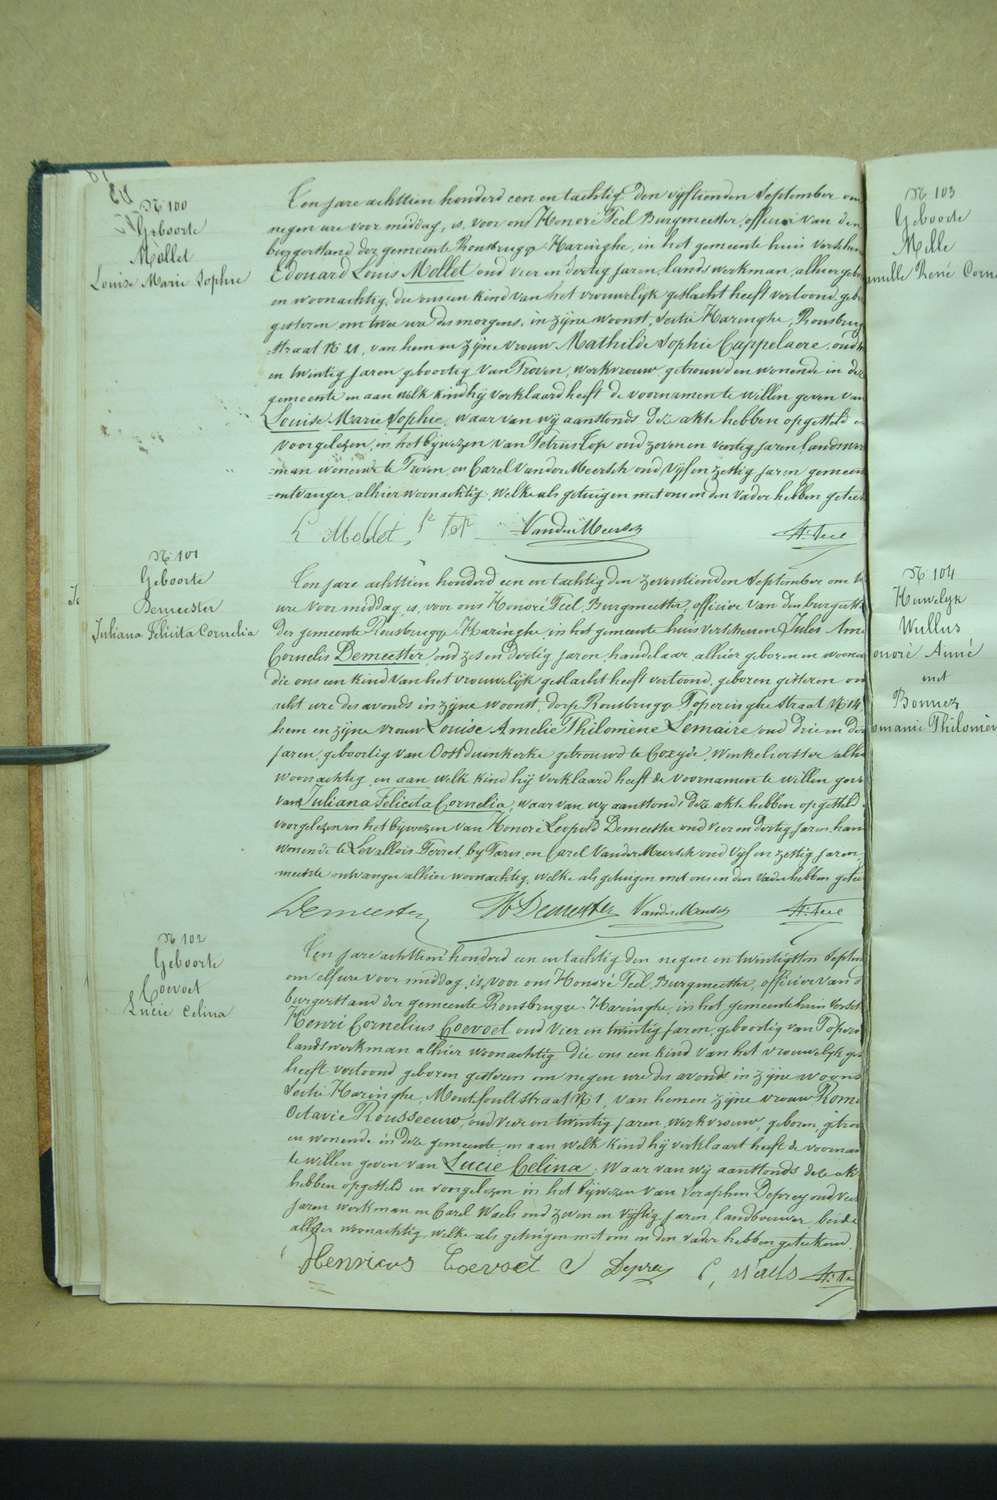 N 100
Geboorte
Mollet
Louise Marie Sophie
Ten jare achttien honderd een en tachtig den vijftienden September om
negen ure voor middag, is voor ons Honoré Feel Burgmeester, officier van den
burgerstand der gemeente Rousbrugge Haringhe, in het gemeente huis verschenen
Edouard Louis Mollet oud vier en dertig jaren, landswerkman, alhier gebo
en woonachtig, die ons een kind van het vrouwelijk geslacht heeft vertoond, gebo
gisteren om twee ure des morgens, in zijne woonst, Sectie Haringhe, Rousbrug
straat N 21, van hem en zijne vrouw Mathilde Sophie Cappelaere, oud
en twintig jaren geboortig van Proven, werkvrouw getrouwd en wonende in deze
gemeente en aan welk kind hij verklaard heeft de voornamen te willen geven van
Louise Marie Sophie, waar van wij aanstonds deze akte hebben opgesteld e
voorgelezen, in het bijwezen van Petrus Top oud zeven en veertig jaren, landswer
=man wonende te Proven, en Carel Van der Meersch oud vijf en zestig jaren gemeen
=ontvanger alhier woonachtig, welke als getuigen met ons en den vader hebben geteek
L Mollet, P Top Vander Meersch H. Feel
N 101
Geboorte
Demeester
Juliana Felicita Cornelia
Ten jare achttien honderd een en tachtig den zeventienden September om
ure voor middag, is, voor ons Honoré Feel, Burgmeester, officier van den burgerst
der gemeente Rousbrugge Haringhe, in het gemeente huis verschenen Jules Amé
Cornelis Demeester oud zes en dertig jaren, handelaar alhier geboren en woonac
die ons een kind van het vrouwelijk geslacht heeft vertoond, geboren gisteren om
acht ure des avonds in zijne woonst, dorp Rousbrugge Poperinghe straat N 14
hem en zijne vrouw Louise Amelie Philomène Lemaire oud drie en der
jaren, geboortig van Oostduinkerke getrouwd te Coxyde, Winkelierster alhi
woonachtig, en aan welk kind hij verklaard heeft de voornamen te willen geve
van Juliana Felicita Cornelia, waar van wij aanstonds deze akte hebben opgesteld
voorgelezen in het bijwezen van Honoré Leopold Demeester oud vier en dertig jaren, han
wonende te Levallois Perret, by Parys, en Carel Van der Meersch oud vijf en zestig jaren,
meente ontvanger alhier woonachtig, welke als getuigen met ons en den vader hebben geteek
Demeester H Demeester Vander Meersch H. Feel
N 102
Geboorte
Coevoet
Lucie Celina
Ten jare achttien honderd een en tachtig den negen en twintigsten Septem
om elf ure voor middag, is, voor ons Honoré Feel, Burgmeester, officier van d
burgerstand der gemeente Rousbrugge Haringhe, in het gemeentehuis versch
Henri Cornelius Coevoet oud vier en twintig jaren, geboortig van Poper
landswerkman alhier woonachtig die ons een kind van het vrouwelijk ges
heeft vertoond geboren gisteren om negen ure des avonds in zijne woons
Sectie Haringhe, straat N 1, van hem en zijne vrouw Rome
Octavie Rousseeuw, oud vier en twintig jaren, werkvrouw, geboren, getrou
en wonende in deze gemeente en aan welk kind hij verklaart heeft de voornam
te willen geven van Lucie Celina. Waar van wij aanstonds deze ak
hebben opgesteld en voorgelezen in het bijwezen van Seraphin Deprey oud vier
jaren werkman en Carel Waels oud zeven en vijftig jaren, landbouwer, beide
alhier woonachtig, welke als getuigen met ons en den vader hebben geteekend.
Henricus Coevoet S Deprey C, Waels H. Fe
N 103
Geboorte
Mille
amille René Corne
N 104
Huwelyk
Wullus
onoré Aimé
met
Bonnez
omanie Philomen